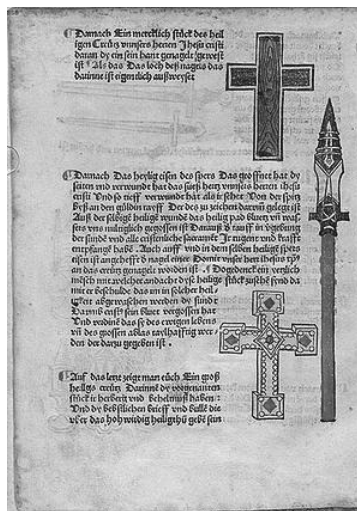 Darnach Ein mercklich stück des heil
igen Creütz vnnsers herren Jhesu cristi
daran dy ein sein hant genagelt gewest
ist Als das Das loch deß nagels das
darinne ist eigentlich außweyset
Darnach Das heylig eisen des spers Das geöffnet hat dy
seiten vnd verwundt hat das süeß hertz vnnsers herren ihesu
cristi Vnd so tieff verwundt hat als ir sehet Von der spitz
byß an den güldin rayff Der des zu zeichen daran gelegt ist
Auß der selbigen heilige wunde das heilig pad bluetz vnd was
sers vns miltiglich gegossen ist Darauß dy tauff in vgebung
der sunde vnd alle cristenliche sacrament Ir tugent vnd krafft
entpfangen haben Auch auff vnd in dem selben heiligen spers
eisen ist angehefft dy nagel einer Domit vnser herr ihesus
an das creutz genagelt worden ist Dogedenckt ein yetzlich
mensch mit welcher andacht dyse heilige stück zusehen synd da
mit er beschulde das im in solcher heil
igkeit abgewaschen werden dy sund
Darumb cristus sein bluet vergossen hat
Vnd verdine das sy des ewigen lebens
vn des grossen ablas taylhafftig wer
den der darzu gegeben ist
Auf das letzt zeigt man euch Ein groß
heiligs creutz Darinne dy vorgenanten
stück ir herberg vnd behelmuß haben
Vnd dy bebstlichen brieff vnd bulle die
vber das hohwirdig heiligthum geben sein